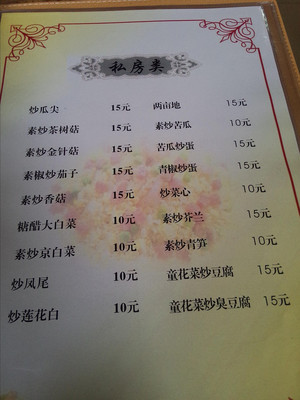 私房类
炒瓜尖 15元 两亩地 15元
素炒茶树菇 15元 素炒苦瓜 10元
素炒金针菇 15元 苦瓜炒蛋 15元
素椒炒茄子 15元 青椒炒蛋 15元
素炒香菇 15元 炒菜心 10元
糖醋大白菜 10元 素炒芥兰 15元
素炒京白菜 10元 素炒青笋 10元
炒凤尾 10元 童花菜炒豆腐 15元
炒莲花白 10元 童花菜炒臭豆腐 15元